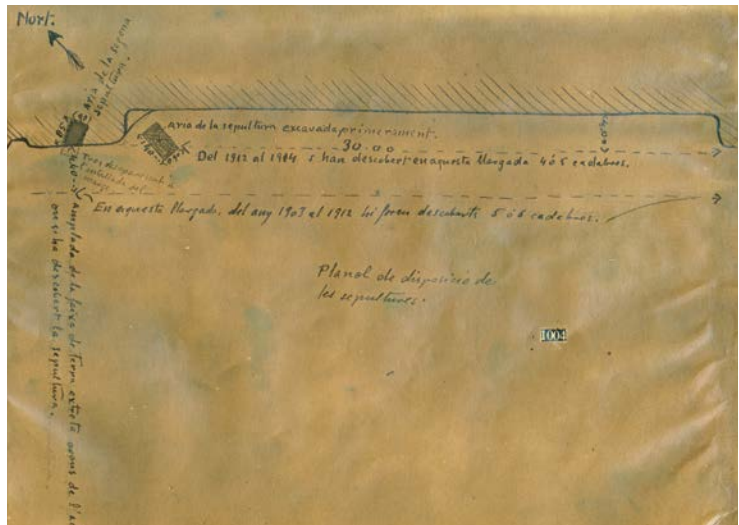 Nort.
Aria de la segona
sepultura.
Aria de la sepultura excavada primerament.
30.00
Del 1912 al 1914 s'han descobert en aquesta llargada 4 ó 5 cadabres.
En aquesta llargada, del any 1903 al 1912 hi foren descuberts 5 ó 6 cadabres.
Planol de disposició de
les sepultures.
1004
Amplada de la faixa de terra extreta avans de l'
on s'ha descobert la sepultura.